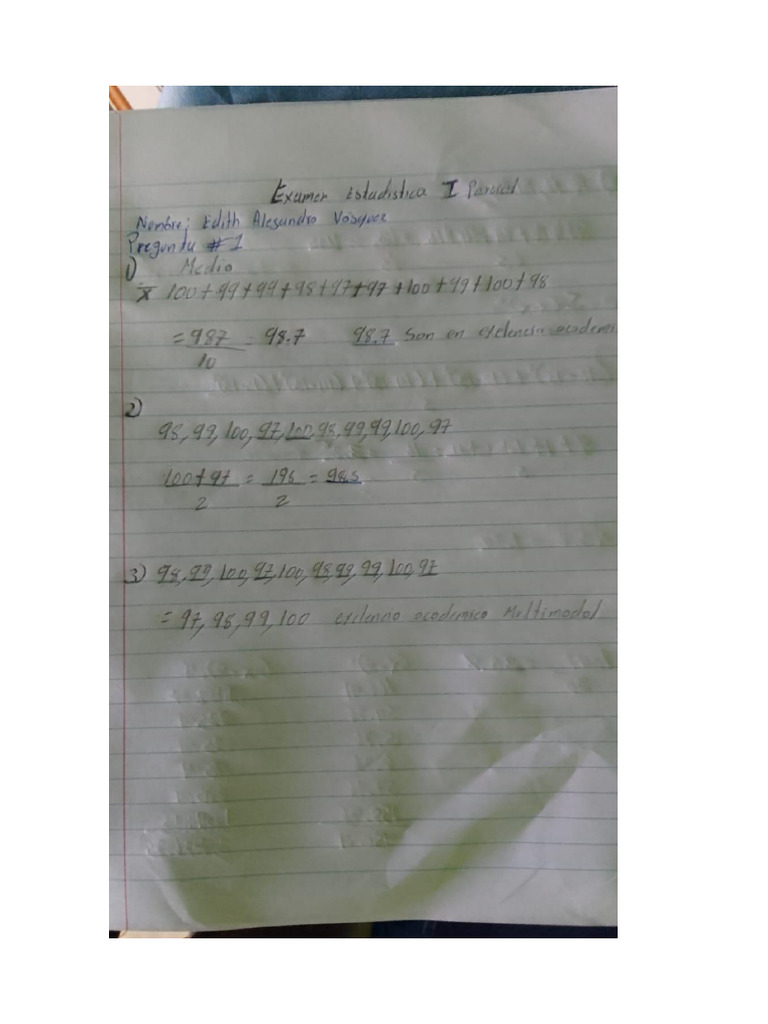 Examen Estadistica I Parcial
Nombre: Edith Alesandra Vasquez
Pregunta #1
1) Media
X 100+99+99+98+97+97+100+99+100+98
= 987 = 98.7 98.7 Son en exelencia academi
10
2)
98, 99, 100, 97, 100, 98, 99, 99, 100, 97
100+97 = 196 = 98.5
2 2
3) 98, 99, 100, 97, 100, 98, 99, 99, 100, 97
= 97, 98, 99, 100 exelencia academica Multimodal